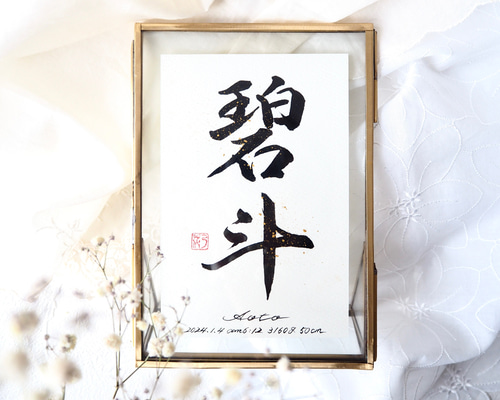 碧斗
Aoto
2024.1.4 am6:12 3160g 50cm